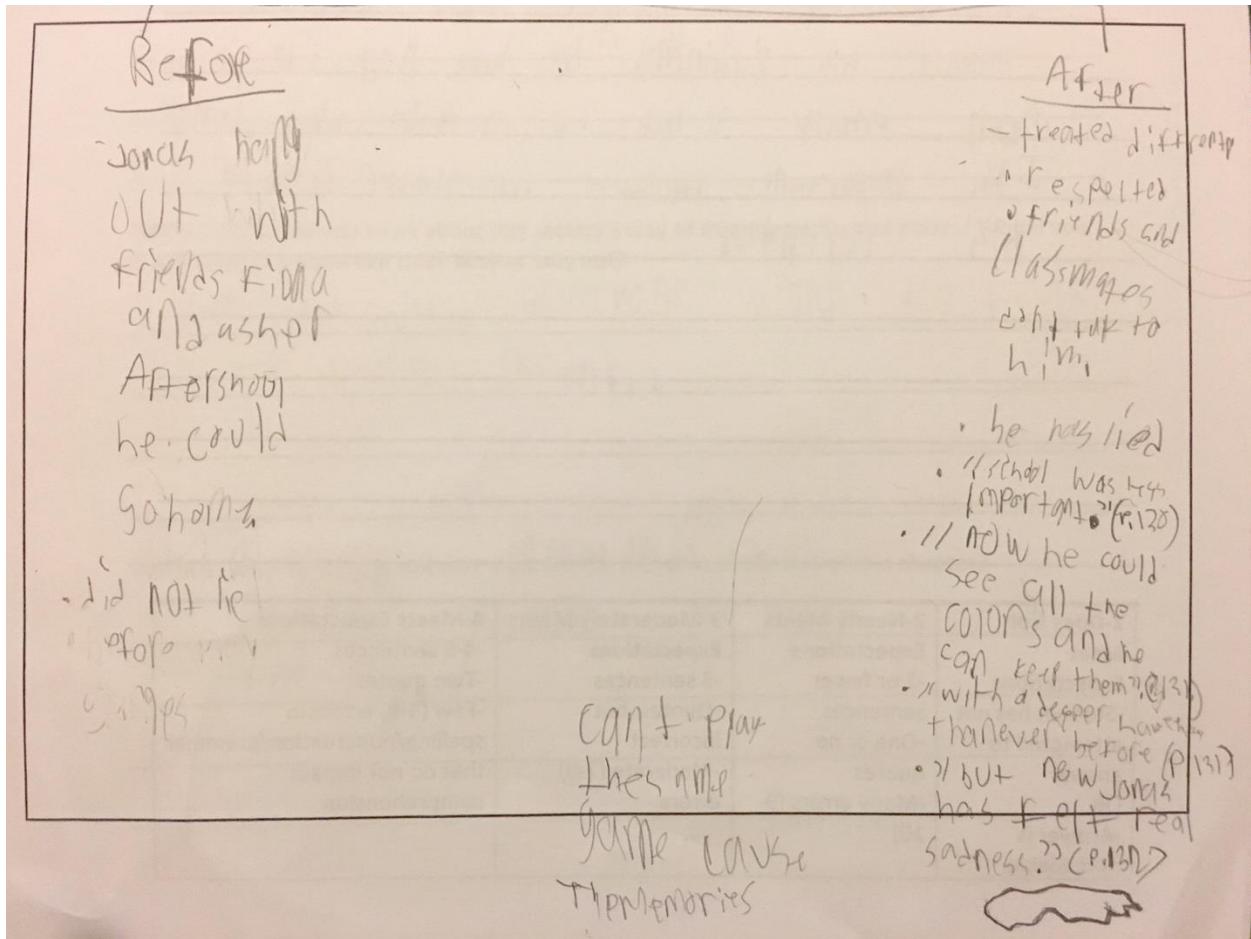 Before
Jonas hang
out with
friends Fiona
and asher
Aftershool
he could
go home.
did not lie
After
- treated diffrently
respected
friends and
Classmates
dont talk to
him.
he has lied
"school was less
important." (p.130)
"now he could
see all the
colors and he
can keep them" (p.131)
"with a deeper
than ever before (p.131)
"but now Jonas
has felt real
sadness." (p.132)
cant play
the same
game cause
The Memories